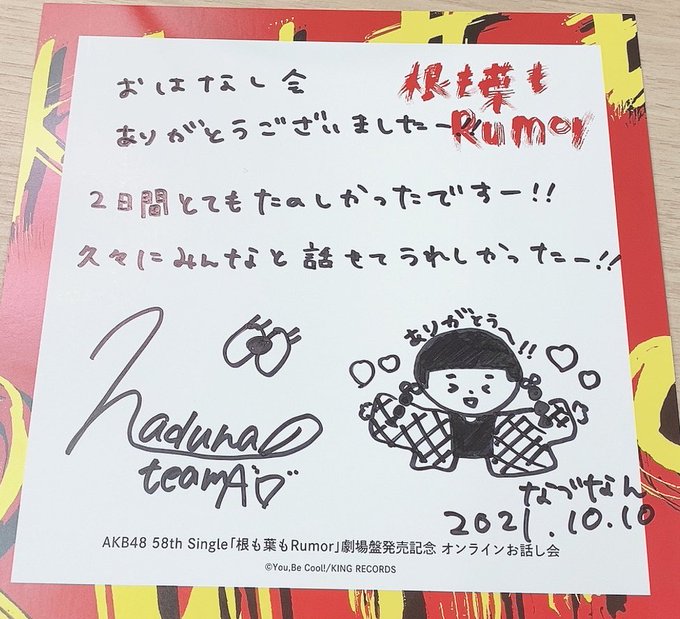 おはなし会
根も葉も
Rumor
ありがとうございましたー!!
2日間とてもたのしかったですー!!
久々にみんなと話せてうれしかったー!!
ありがとう〜!!
naduna
teamA
なづなん
2021.10.10
AKB48 58th Single「根も葉もRumor」劇場盤発売記念 オンラインお話し会
©You,Be Cool!/KING RECORDS